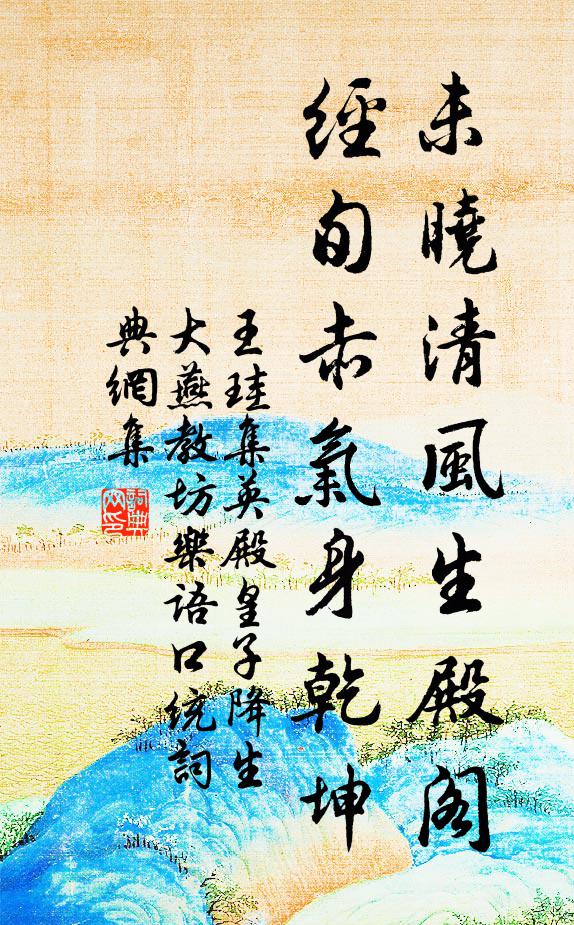 未曉清風生殿閣
經旬赤氣身乾坤
王珪集英殿皇子降生
大燕教坊樂語口統詞
典網集